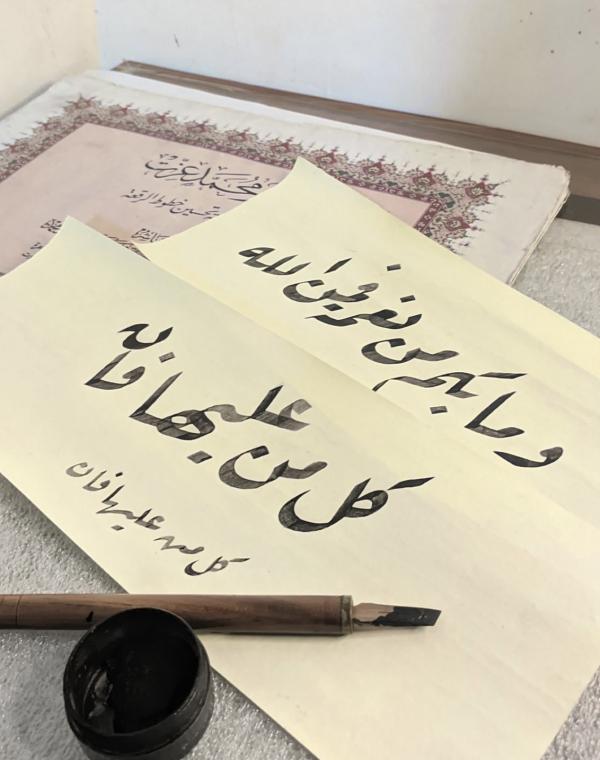 محمد عزت
تحسين خطوط الرقعة
وما بكم من نعمة فمن الله
كل من عليها فان
كل من عليها فان